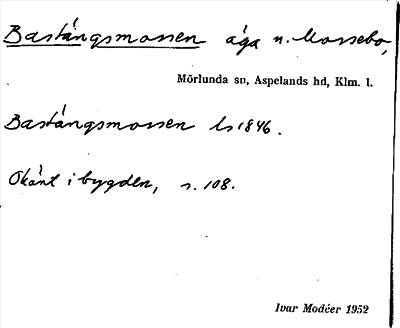 Bastångsmossen äga n. Mossebo,
Mörlunda sn, Aspelands hd, Klm. l.
Bastångsmossen Ls 1846.
Okänt i bygden, s. 108.
Ivar Modéer 1952